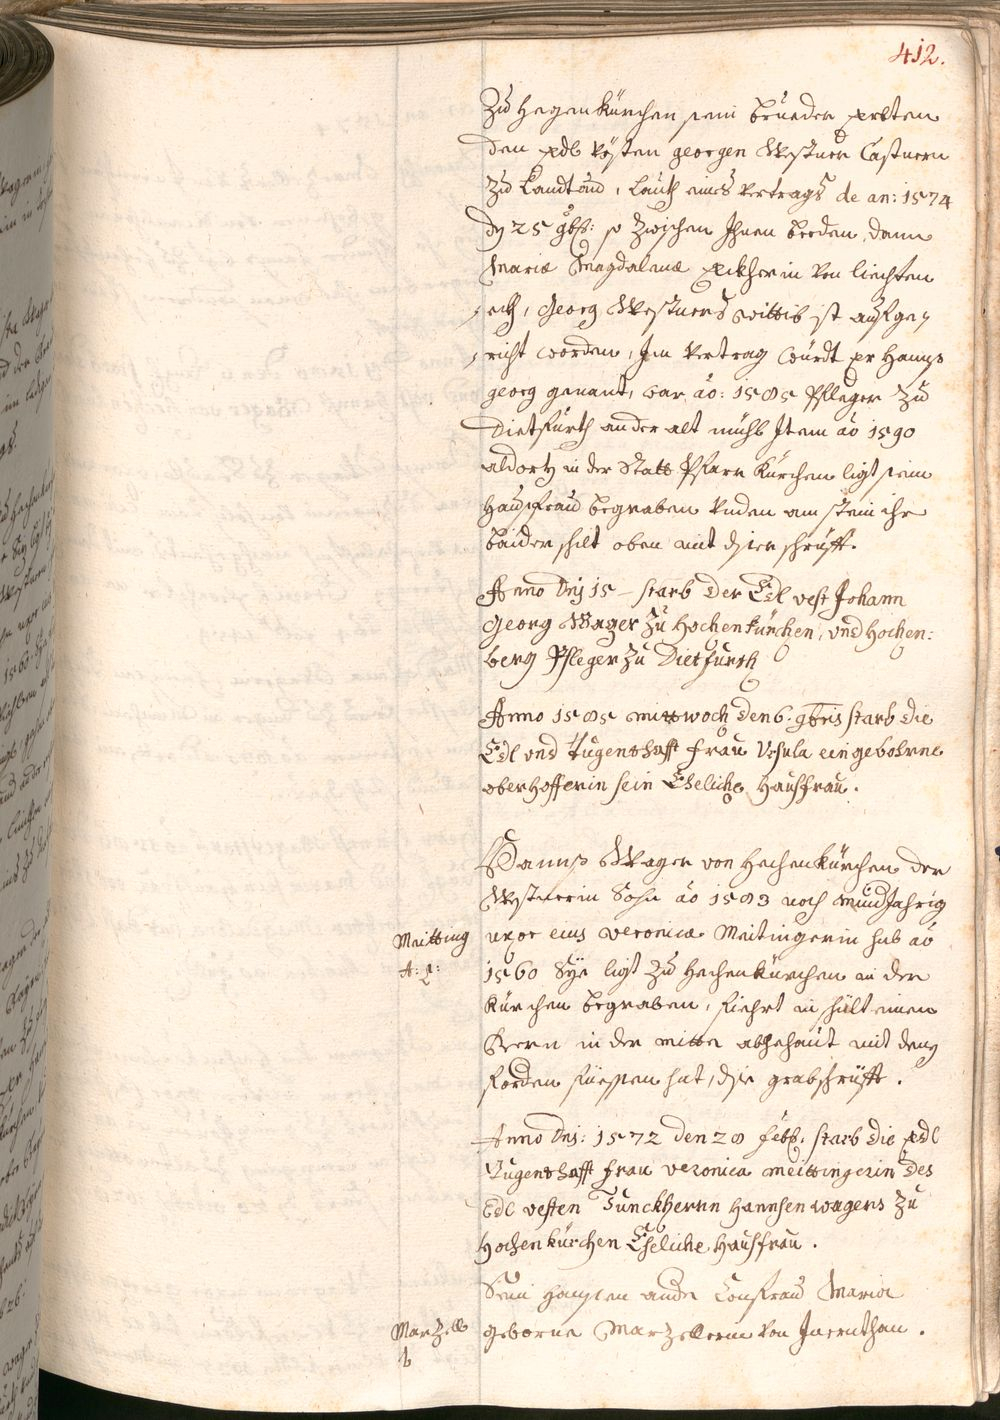 412.
Zu Hegenkürchen sein brueder erbten
den edl vesten georgen Westner Castnern
zu Landtau, lauth eines vertrags de an: 1574
dy 25 9bʳ: so zwischen Ihnen beeden, dann
Mariæ Magdalenæ Eckherin von liechten
ech, Georg Westners wittib ist aufge
richt worden, Im vertrag würdt er Hanns
georg genant, war ao: 1585 Pfleger zu
Dietfürth an der alt mühl Item ao 1590
aldort in der Statt Pfarr Kürchen ligt sein
Hausfrau begraben unden am stein ihr
baider schilt oben mit diser schrifft.
Anno Dnj 15 – starb der Edl vest Johann
Georg Wager zu Hochenkürchen, vnd Hochen:
berg Pfleger zu Dietfurth
Anno 1585 mittwoch den 6. 9bris starb die
Edl vnd Tugenthafft frau Vrsula ein gebohrne
oberhofferin sein Eheliche Hausfrau.
Hanns Wager von Hechenkürchen der
Westnerin Sohn ao 1583 noch mundJahrig
Meitting uxor eius veronica Meitingerin hub ao
A: 2: 1560 Sye ligt zu Hechenkürchen in der
Kürchen begraben, fiehrt in schilt einen
Beern in der mitte abgehaut mit den
fordern fuessen hat, die grabschrifft.
Anno Dnj: 1572 den 28 febʳ: starb die edl
Tugenthafft frau veronica meittingerin des
Edl vesten Junckherrn Hannsen wagers zu
Hochenkürchen Eheliche Hausfrau.
Sein Hannsen andre Hausfrau Maria
MarZell geborne Marzellerin von
b